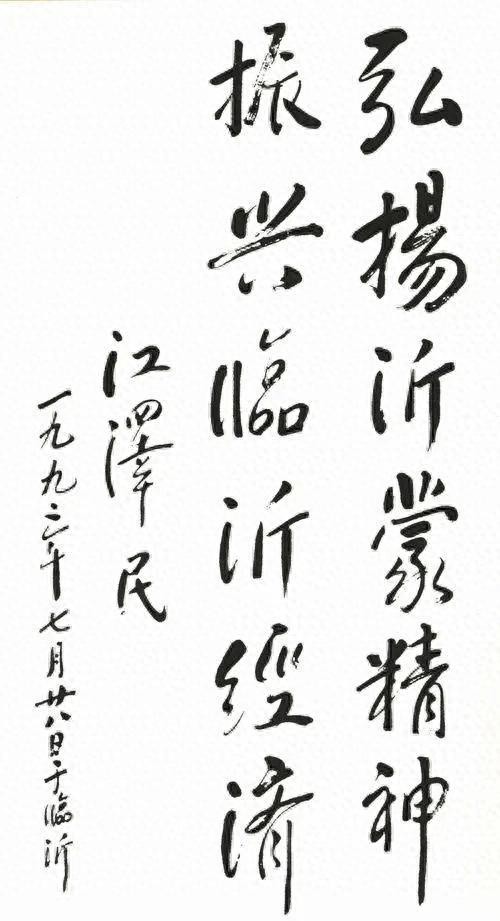 弘揚沂蒙精神
振兴臨沂經濟
江澤民
一九九二年七月廿八日于臨沂